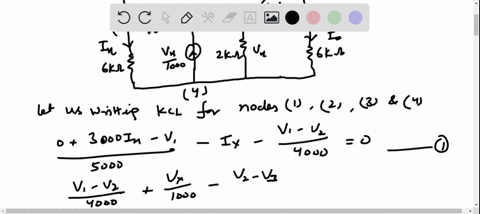 Ix
6KΩ
Vx/1000
2KΩ
Vx
Io
6KΩ
(4)
let us writing KCL for nodes (1), (2), (3) & (4)
(0 + 3000Ix - V1)/5000 - Ix - (V1 - V2)/4000 = 0 ——— ①
(V1 - V2)/4000 + Vx/1000 - V2 - V3